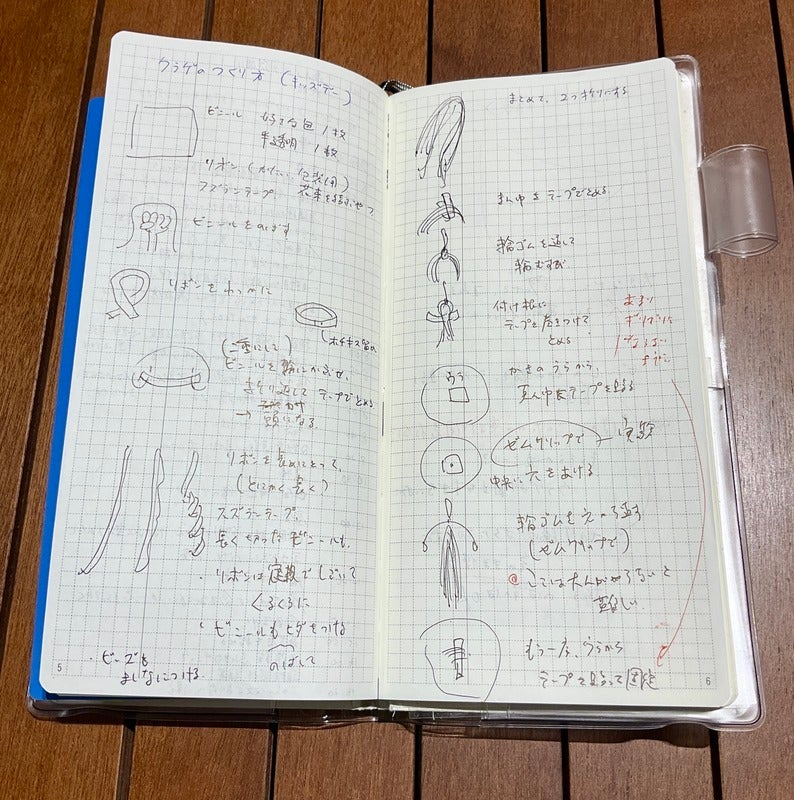 クラゲのつくり方 (キッズデー)
ビニール
1枚
半透明 1枚
リボン (かたい、包装用)
スズランテープ 花束を結ぶやつ
ビニールをのばす
リボンをわっかに
(ホチキス留め
(二重にして)
ビニールを輪にかぶせ、
折り返して テープでとめる
→ 頭になる
リボンを長めにとって、
(とにかく長く)
スズランテープ、
長く切ったビニールも、
・リボンは定規でしごいて
くるくるに
・ビニールもヒダをつける
のばして
・ビーズも
5
まとめて、2つ折りにする
まん中をテープでとめる
輪ゴムを通して
輪むすび
付け根に
テープを巻きつけて
とめる
あまり
ギリギリに
ならない
ように
かさのうらから、
ウラ
真ん中にテープを貼る
ゼムクリップで
実験
中央に穴をあける
輪ゴムを穴へ通す
(ゼムクリップで)
@ ここは大人がやらないと
難しい
もう一度、うらから
テープを貼って固定
6